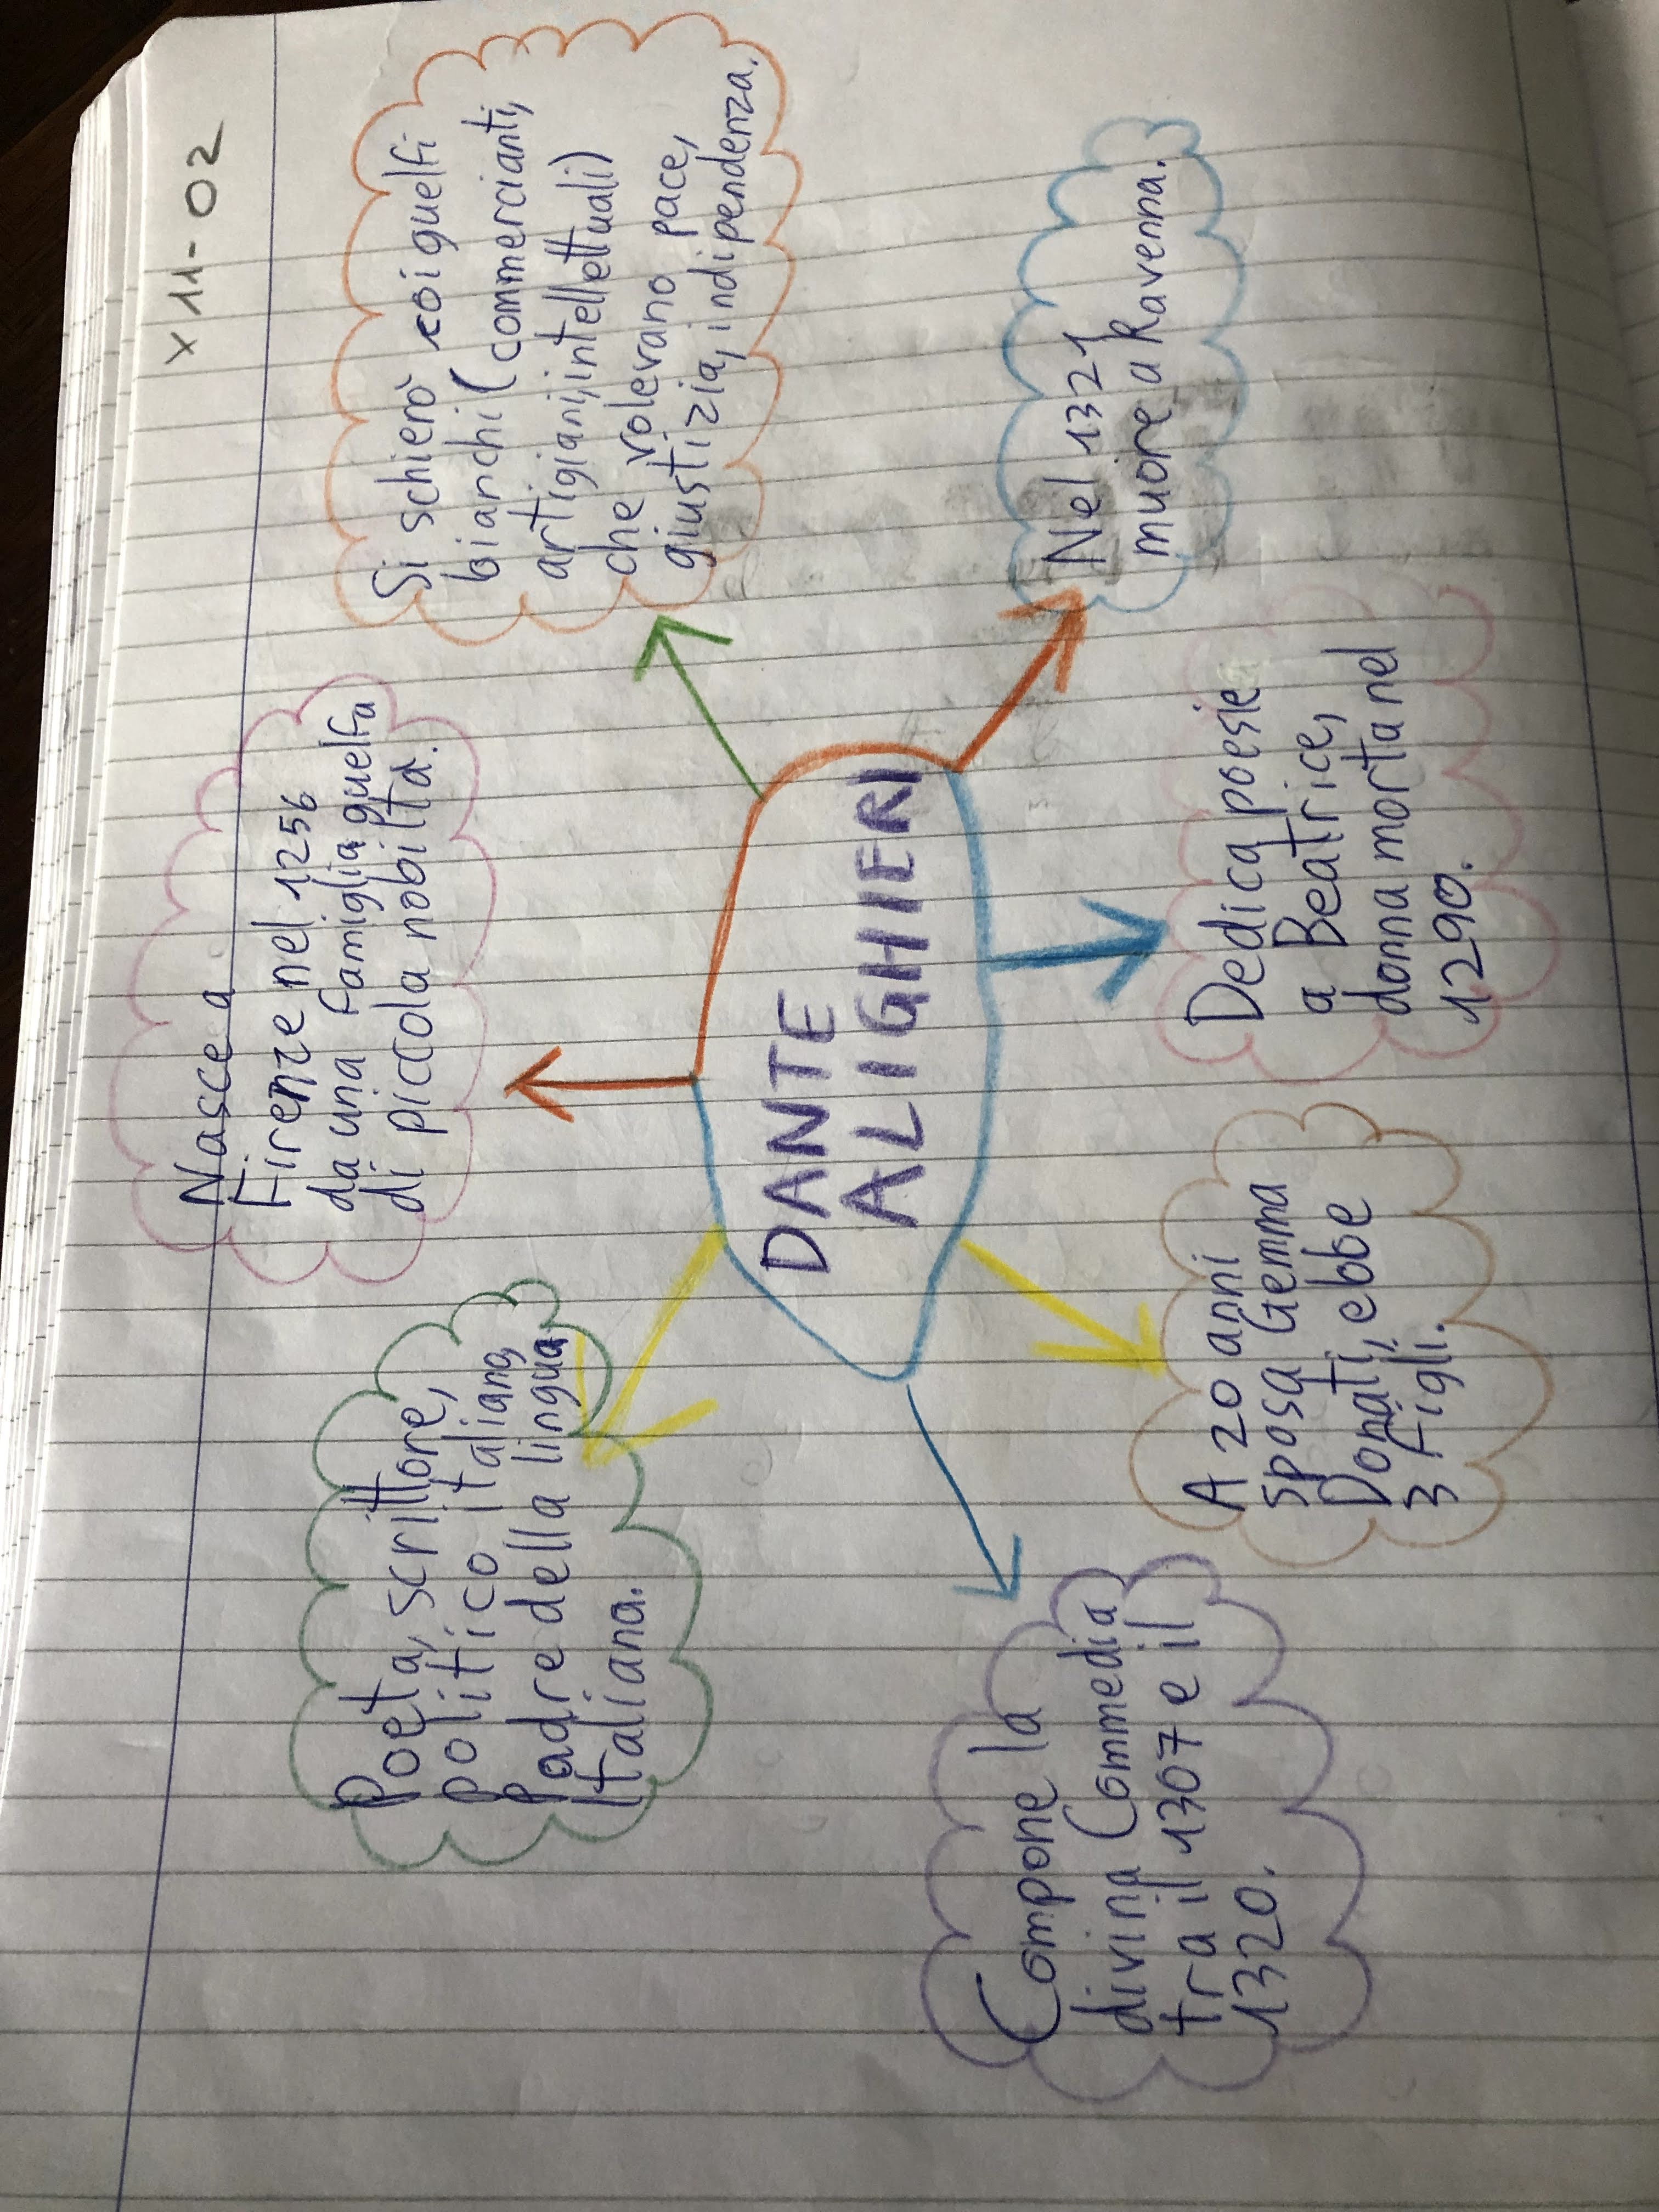 x 11-02
Poeta, scrittore,
politico italiano,
Padre della lingua
Italiana.
Nasce a
Firenze nel 1256
da una famiglia guelfa
di piccola nobiltà.
Si schierò coi guelfi
bianchi (commercianti,
artigiani, intellettuali)
che volevano pace,
giustizia, indipendenza.
DANTE
ALIGHIERI
Compone la
divina Commedia
tra il 1307 e il
1320.
A 20 anni
sposa Gemma
Donati, ebbe
3 figli.
Dedica poesie
a Beatrice,
donna morta nel
1290.
Nel 1321
muore a Ravenna.